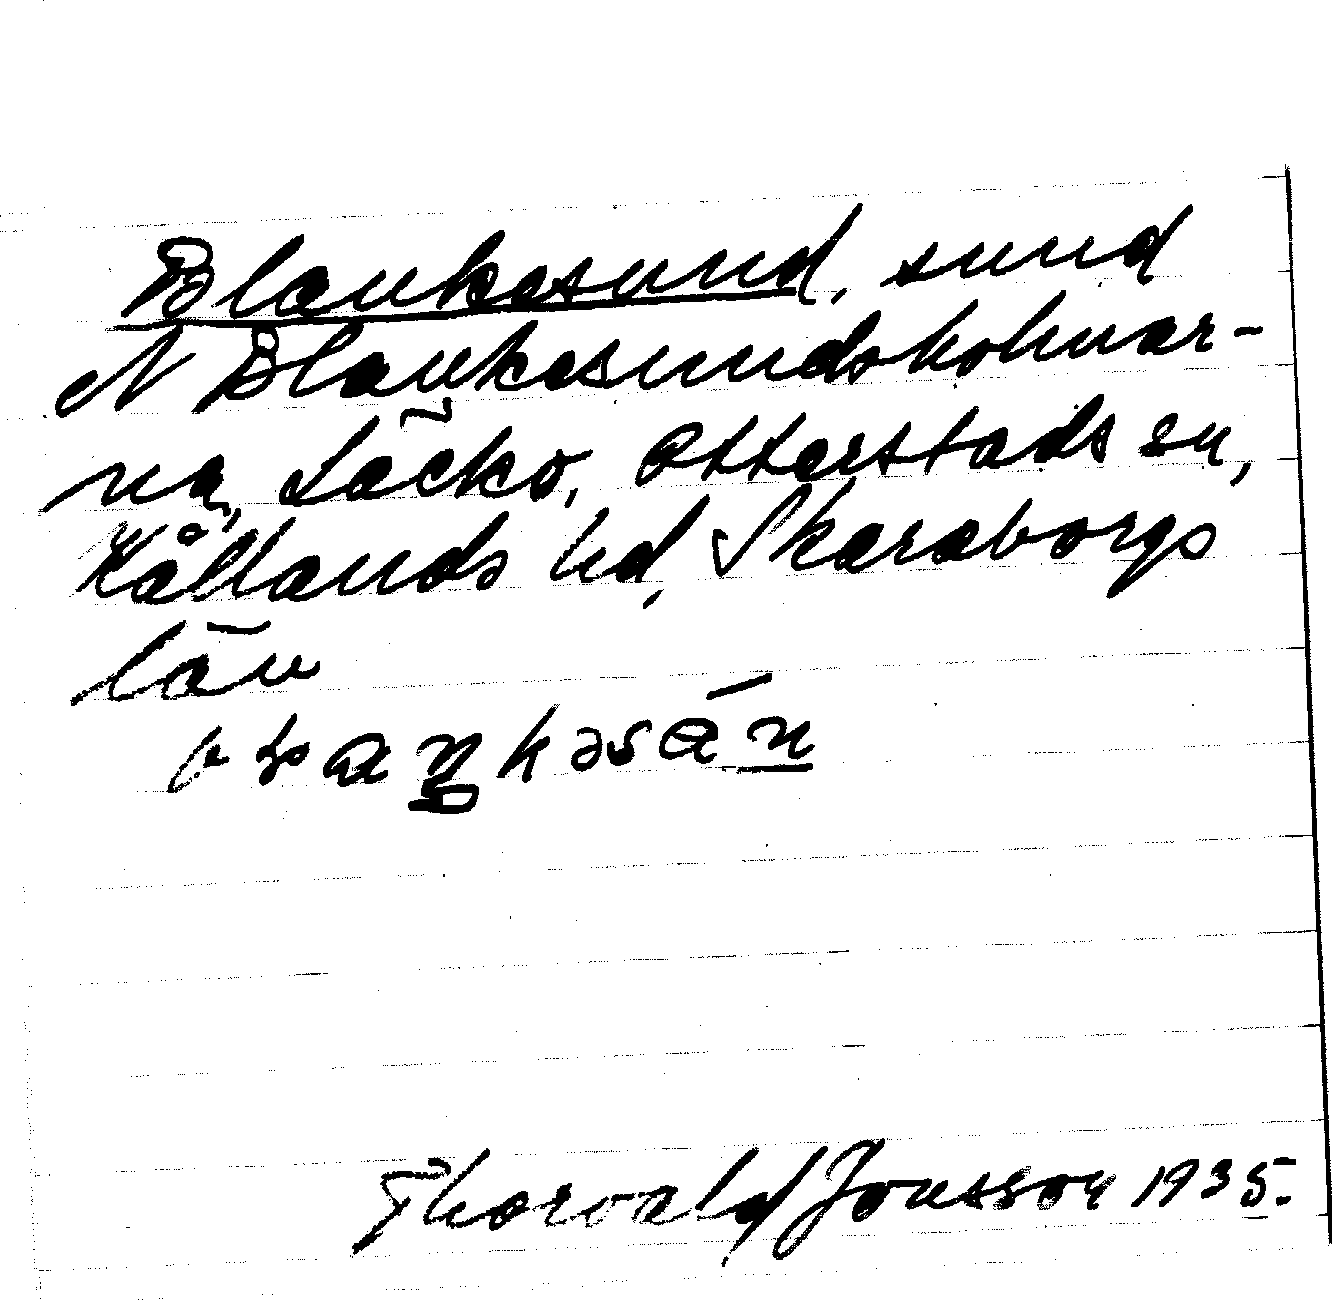 Blankesund, sund
N Blankesundsholmar-
na, Läckö, Otterstads sn,
Kållands hd, Skaraborgs
län
Thorvald Jonsson 1935.